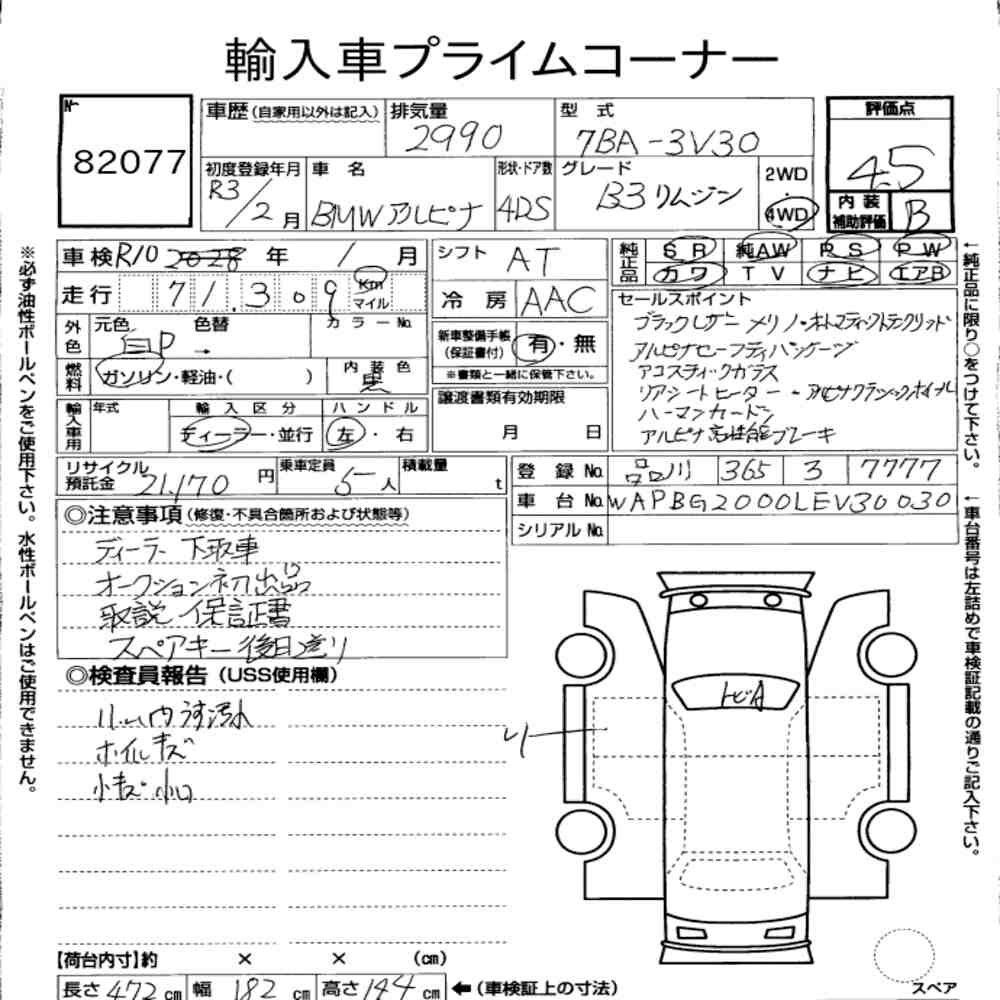 輸入車プライムコーナー
№
82077
車歴 (自家用以外は記入)
排気量
2990
型式
7BA-3V30
評価点
4.5
初度登録年月
R3/2月
車名
BMWアルピナ
形状・ドア数
4DS
グレード
B3 リムジン
2WD
・
4WD
内装
補助評価
B
車検 R10 2028 年 1 月
シフト AT
純正品
SR 純AW PS PW
カワ TV ナビ エアB
走行 71.309 Km マイル
冷房 AAC
セールスポイント
ブラックレザー メリノ・オートマティックトランクリッド
アルピナセーフティパッケージ
アコスティックガラス
リアシートヒーター・アルピナクラシックホイール
ハーマンカードン
アルピナ高性能ブレーキ
外色
元色 白P →
色替
カラーNo.
新車整備手帳
(保証書付)
有・無
※書類と一緒に保管下さい。
燃料
ガソリン・軽油・( )
内装色
黒
譲渡書類有効期限
月 日
輸入車用
年式
輸入区分
ディーラー・並行
ハンドル
左・右
リサイクル
預託金 21,170 円
乗車定員 5人
積載量 t
登録No. 品川 365 ろ 7777
車台No. WAPBG2000LEV30030
シリアルNo.
◎注意事項 (修復・不具合箇所および状態等)
ディーラー下取車
オークション初出品
取説 保証書
スペアキー後日送り
◎検査員報告 (USS使用欄)
リム内うす汚れ
ホイルキズ
小キズ 小凹
トビA
リー
【荷台内寸】約 × × (cm)
長さ 472 cm 幅 182 cm 高さ 144 cm ←(車検証上の寸法)
スペア
※必ず油性ボールペンをご使用下さい。水性ボールペンはご使用できません。
←純正品に限り○をつけて下さい。
←車台番号は左詰めで車検証記載の通りご記入下さい。